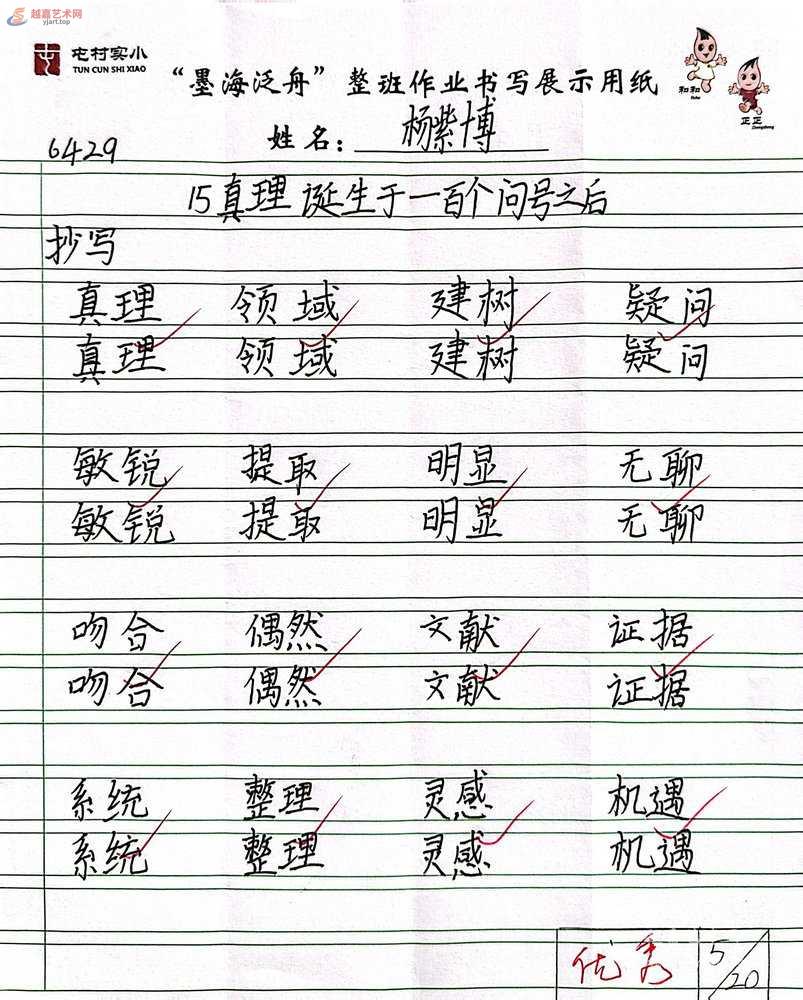 越嘉艺术网
yjart.top
屯村实小
TUN CUN SHI XIAO
“墨海泛舟”整班作业书写展示用纸
和和
Hehe
正正
Zhengzheng
6429
姓名：杨紫博
15真理诞生于一百个问号之后
抄写
真理 领域 建树 疑问
真理 领域 建树 疑问
敏锐 提取 明显 无聊
敏锐 提取 明显 无聊
吻合 偶然 文献 证据
吻合 偶然 文献 证据
系统 整理 灵感 机遇
系统 整理 灵感 机遇
优秀 5/20